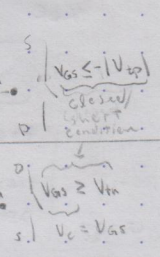 S
V_GS ≤ -|V_tp|
closed/
short
condition
D
D
V_GS ≥ V_tn
S
V_C = V_GS